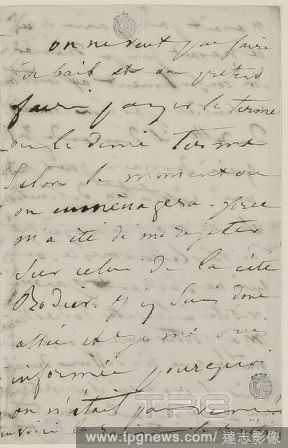 on ne veut pas faire
de bail et on prétend
faire payer le terme
ou le demi terme
selon le moment où
on emménagera. force
m'a été de me rejeter
sur celui de la cité
Rodier. J'y suis donc
allée et je me suis
informée pourquoi
on n'était pas venu
TPG
www.tpgnews.com / 達志影像